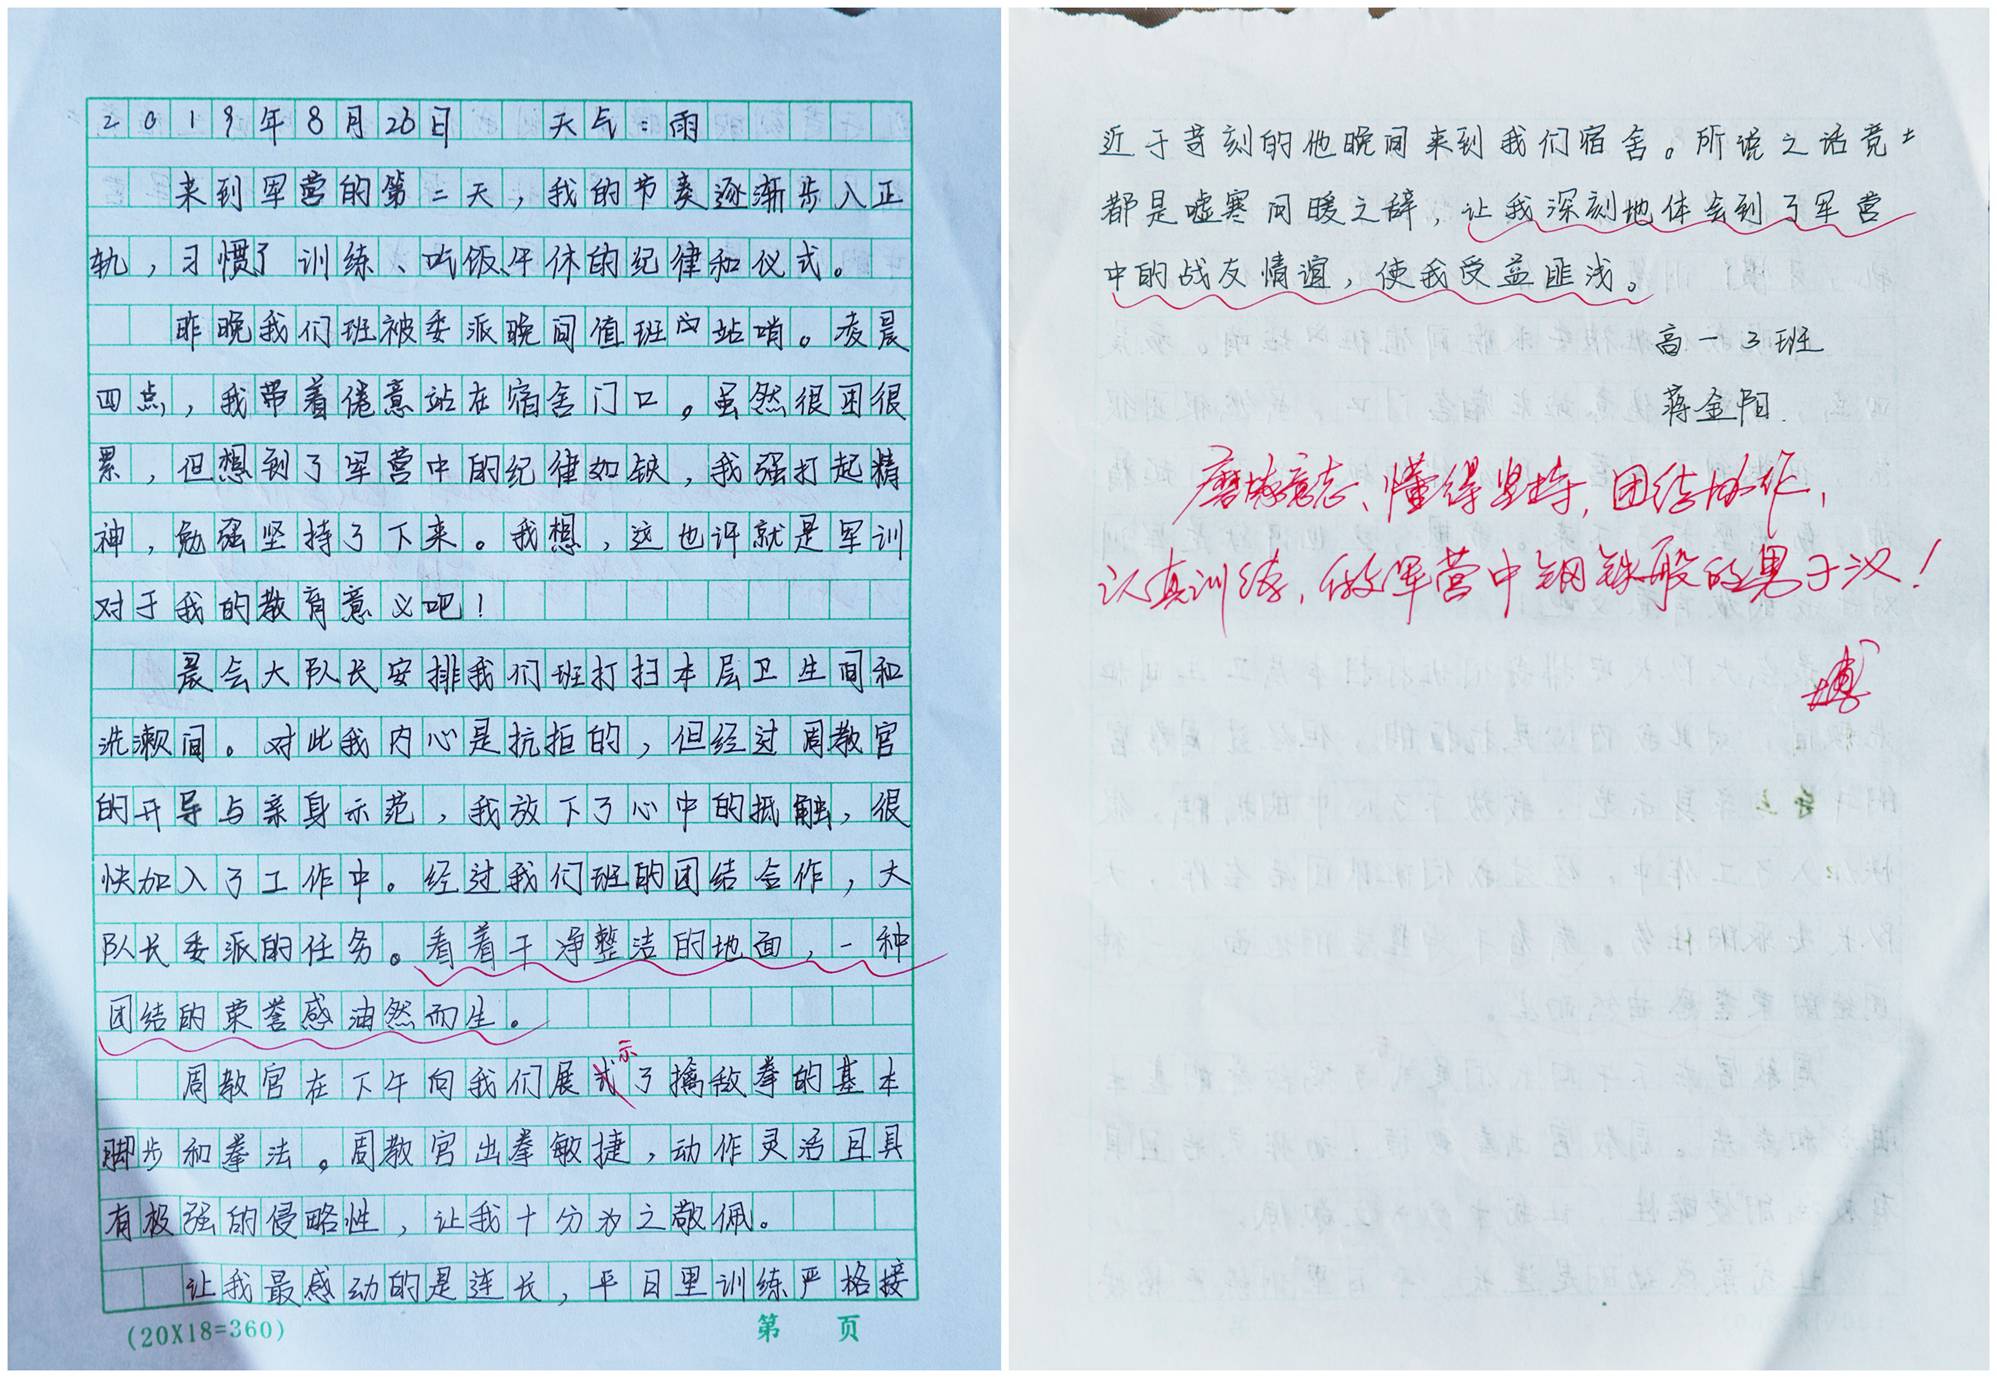 2019年8月26日 天气:雨
来到军营的第二天,我的节奏逐渐步入正
轨,习惯了训练、吃饭、午休的纪律和仪式。
昨晚我们班被委派晚间值班的站哨。凌晨
四点,我带着倦意站在宿舍门口。虽然很困很
累,但想到了军营中的纪律如铁,我强打起精
神,勉强坚持了下来。我想,这也许就是军训
对于我的教育意义吧!
晨会大队长安排我们班打扫本层卫生间和
洗漱间。对此我内心是抗拒的,但经过周教官
的开导与亲身示范,我放下了心中的抵触,很
快加入了工作中。经过我们班的团结合作,大
队长委派的任务。看着干净整洁的地面,一种
团结的荣誉感油然而生。
示
周教官在下午向我们展式了擒敌拳的基本
脚步和拳法。周教官出拳敏捷,动作灵活且具
有极强的侵略性,让我十分为之敬佩。
让我最感动的是连长,平日里训练严格接
(20X18=360) 第 页
近于苛刻的他晚间来到我们宿舍。所说之话竟
都是嘘寒问暖之辞,让我深刻地体会到了军营
中的战友情谊,使我受益匪浅。
高一3班
蒋金阳.
磨炼意志、懂得坚持,团结协作,
认真训练,做军营中钢铁般的男子汉!